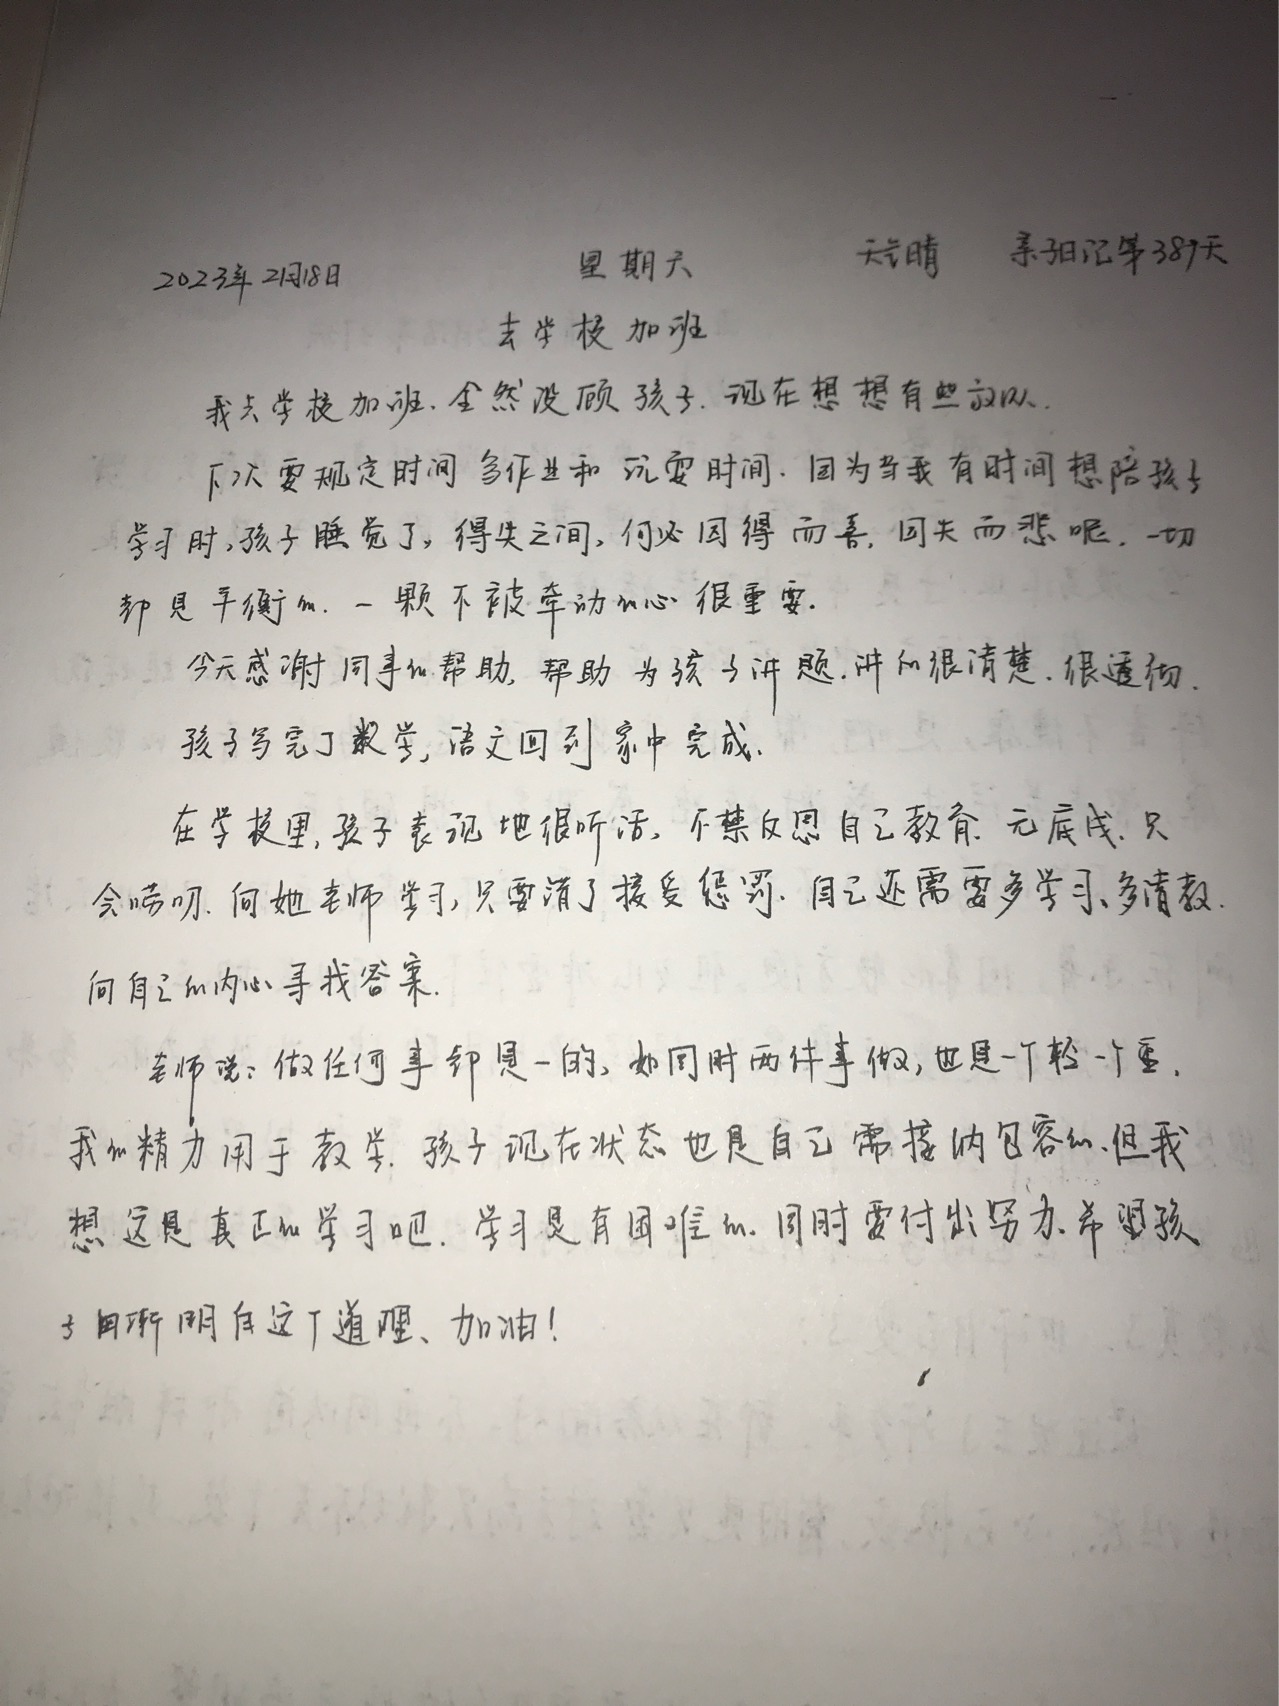 2023年2月18日 星期六 天气晴 亲子日记第389天
去学校加班
我去学校加班.全然没顾孩子.现在想想有些
下次要规定时间写作业和玩耍时间.因为当我有时间想陪孩子
学习时,孩子睡觉了,得失之间,何必因得而喜,因失而悲呢.一切
都是平衡的.一颗不被牵动的心很重要.
今天感谢同事的帮助,帮助为孩子讲题.讲的很清楚.很透彻.
孩子写完了数学,语文回到家中完成.
在学校里,孩子表现地很听话,不禁反思自己教育.无底线.只
会唠叨.向她老师学习,只要消了接受惩罚.自己还需要多学习、多请教.
向自己的内心寻找答案.
老师说:做任何事都是一的,如同时两件事做,也是一个轻一个重.
我的精力用于教学.孩子现在状态也是自己需接纳包容的、但我
想这是真正的学习吧.学习是有困难的.同时要付出努力.希望孩
子日渐明白这个道理、加油!